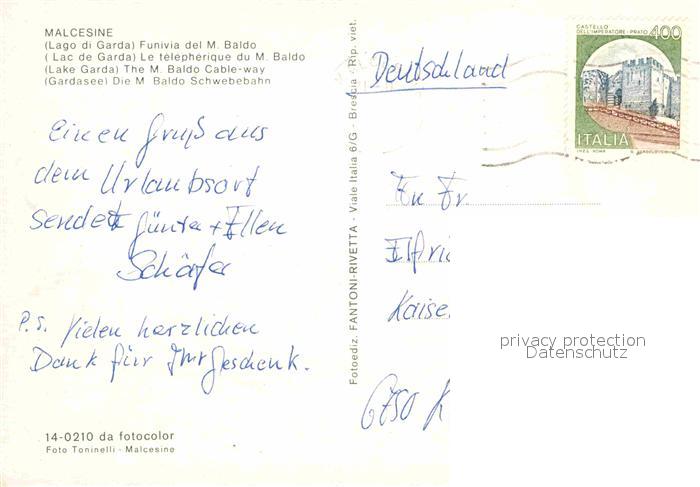 MALCESINE
(Lago di Garda) Funivia del M. Baldo
( Lac de Garda) Le télépherique du M. Baldo
(Lake Garda) The M. Baldo Cable-way
(Gardasee) Die M. Baldo Schwebebahn
Einen Gruß aus
dem Urlaubsort
sendet Günter + Ellen
Schäfer
P.S. Vielen herzlichen
Dank für Ihr Geschenk.
14-0210 da fotocolor
Foto Toninelli - Malcesine
Fotoediz. FANTONI-RIVETTA - Viale Italia 6/G - Brescia - Rip. viet.
CASTELLO
DELL'IMPERATORE - PRATO 400
ITALIA
Deutschland
Fr.
Elfri
Kaise
6750 K
privacy protection
Datenschutz